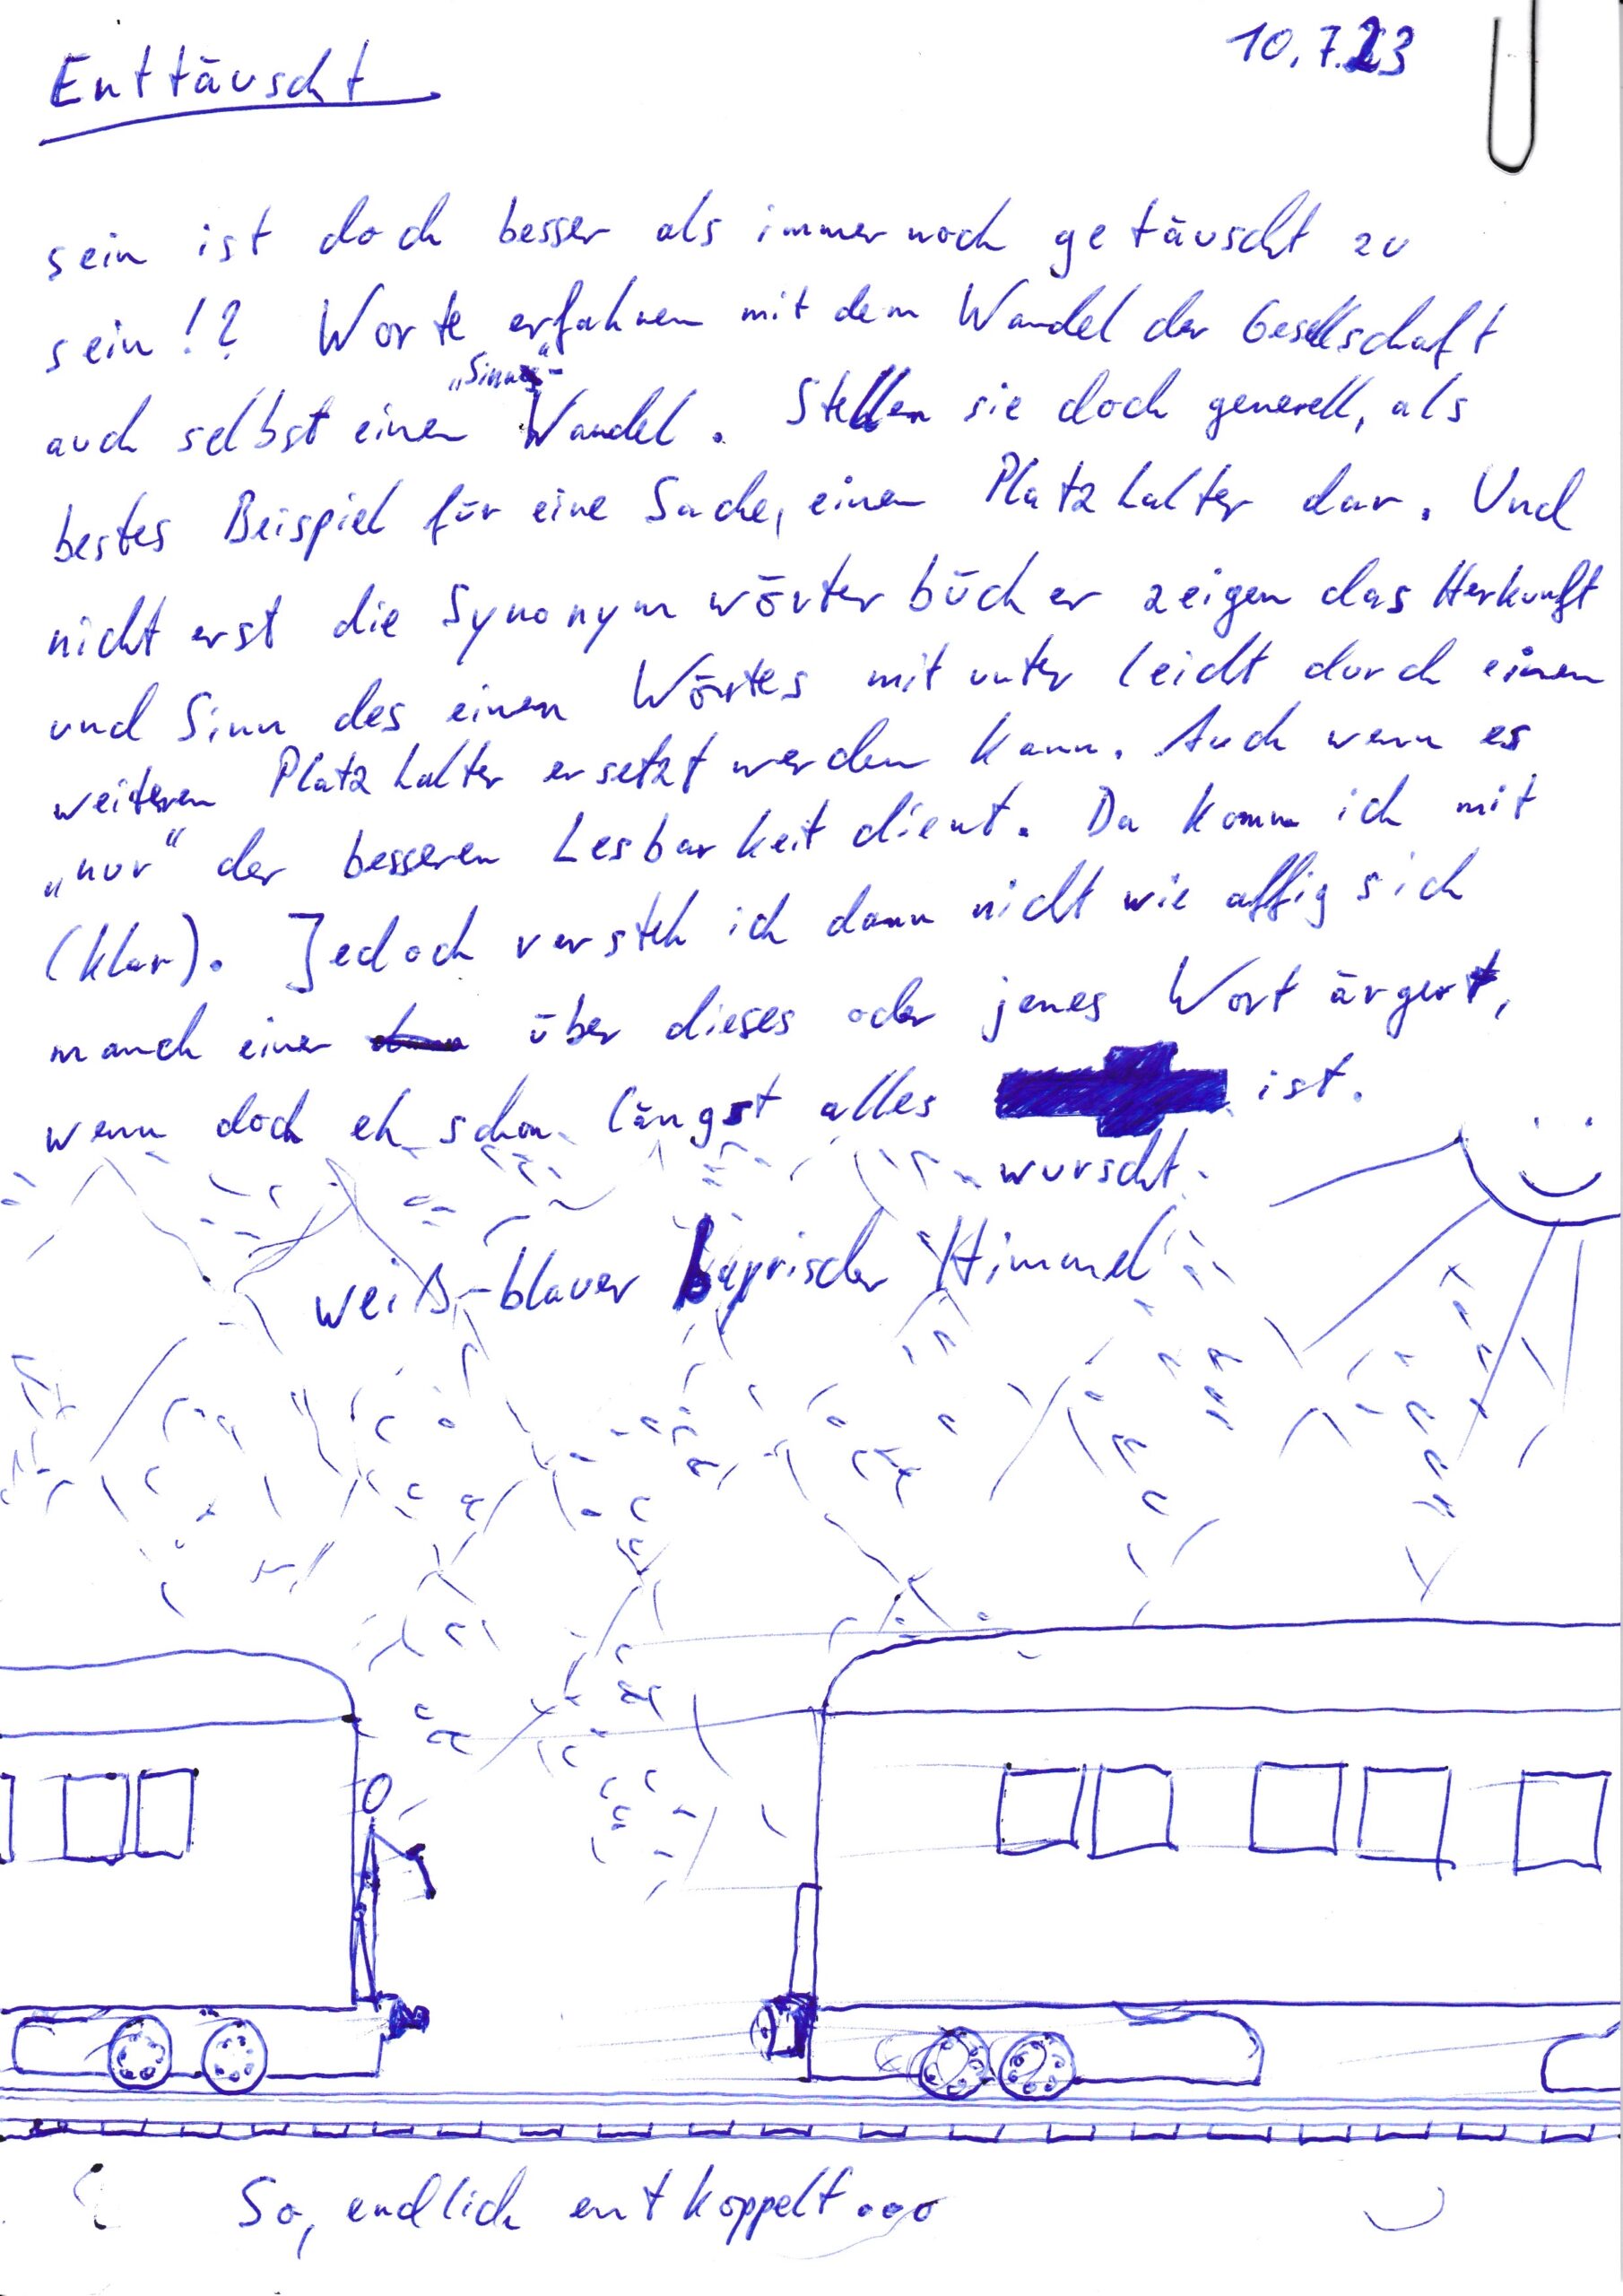 Enttäuscht
10.7.23
sein ist doch besser als immernoch getäuscht zu
sein!? Worte erfahren mit dem Wandel der Gesellschaft
„Sinnes“-
auch selbst einen Wandel. Stellen sie doch generell, als
bestes Beispiel für eine Sache, einen Platzhalter dar. Und
nicht erst die Synonymwörterbücher zeigen das Herkunft
und Sinn des einen Wörtes mitunter leicht durch einen
weiteren Platzhalter ersetzt werden kann. Auch wenn es
„nur“ der besseren Lesbarkeit dient. Da komm ich mit
(klar). Jedoch versteh ich dann nicht wie affig sich
manch einer über dieses oder jenes Wort ärgert,
wenn doch eh schon längst alles ist.
wurscht.
weiß-blauer bayrischer Himmel
So, endlich entkoppelt...